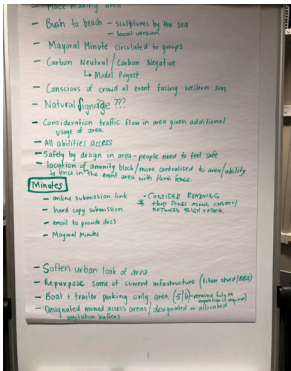 - Place making area
- Bush to beach - sculptures by the sea
- local version
- Mayoral Minute circulated to groups
- Carbon Neutral / Carbon Negative
↳ Model Project
- Conscious of crowd at event facing western sun
- Natural Signage ???
- Consideration traffic flow in area given additional
usage of area
- All abilities access
- Safety by design in area - people need to feel safe
- location of amenity block / more centralised to area / ability
to fence in the area with fence.
Minutes
- online submission link
- hard copy submission
- email to provide docs
- Mayoral Minute
- CONSIDER
BETWEEN
- Soften urban look of area
- Repurpose some of current infrastructure
- Boat + trailer parking only area
- Designated access areas / designated or allocated
vegetation buffers